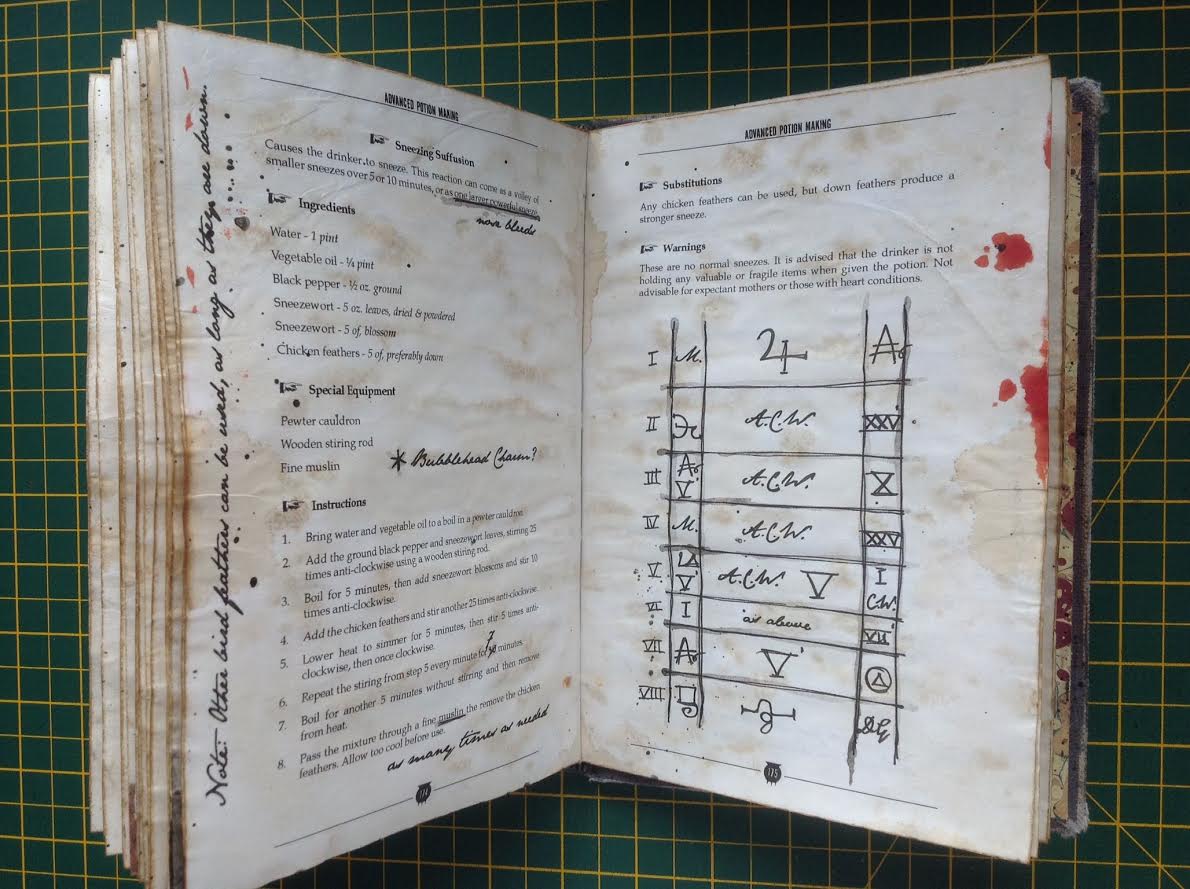 ADVANCED POTION MAKING
Sneezing Suffusion
Causes the drinker to sneeze. This reaction can come as a volley of
smaller sneezes over 5 or 10 minutes, or as one larger powerful sneeze.
nose bleeds
Ingredients
Water - 1 pint
Vegetable oil - ¼ pint
Black pepper - ½ oz. ground
Sneezewort - 5 oz. leaves, dried & powdered
Sneezewort - 5 of, blossom
Chicken feathers - 5 of, preferably down
Special Equipment
Pewter cauldron
Wooden stiring rod
Fine muslin
* Bubblehead Charm?
Instructions
1. Bring water and vegetable oil to a boil in a pewter cauldron
2. Add the ground black pepper and sneezewort leaves, stirring 25
times anti-clockwise using a wooden stiring rod.
3. Boil for 5 minutes, then add sneezewort blossoms and stir 10
times anti-clockwise.
4. Add the chicken feathers and stir another 25 times anti-clockwise.
5. Lower heat to simmer for 5 minutes, then stir 5 times anti-
clockwise, then once clockwise.
6. Repeat the stiring from step 5 every minute for 7 minutes.
7. Boil for another 5 minutes without stirring and then remove
from heat.
8. Pass the mixture through a fine muslin the remove the chicken
feathers. Allow too cool before use.
as many times as needed
174
Note: Other bird feathers can be used, as long as they are down.
ADVANCED POTION MAKING
Substitutions
Any chicken feathers can be used, but down feathers produce a
stronger sneeze.
Warnings
These are no normal sneezes. It is advised that the drinker is not
holding any valuable or fragile items when given the potion. Not
advisable for expectant mothers or those with heart conditions.
I M.
II A.C.W. XXV
III V A.C.W. X
IV M. A.C.W. XXV
V V A.C.W. V I C.W.
VI I as above VII
VII V
VIII
175